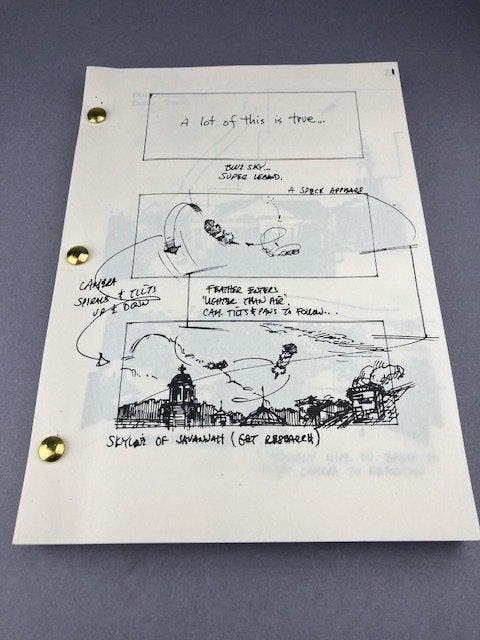 A lot of this is true...
BLUE SKY...
SUPER LEGEND.
A SPECK APPEARS
CAMERA
SPIRALS & TILTS
UP & DOWN
FEATHER ENTERS
'LIGHTER THAN AIR'.
CAM. TILTS & PANS TO FOLLOW...
SKYLINE OF SAVANNAH (GET RESEARCH)